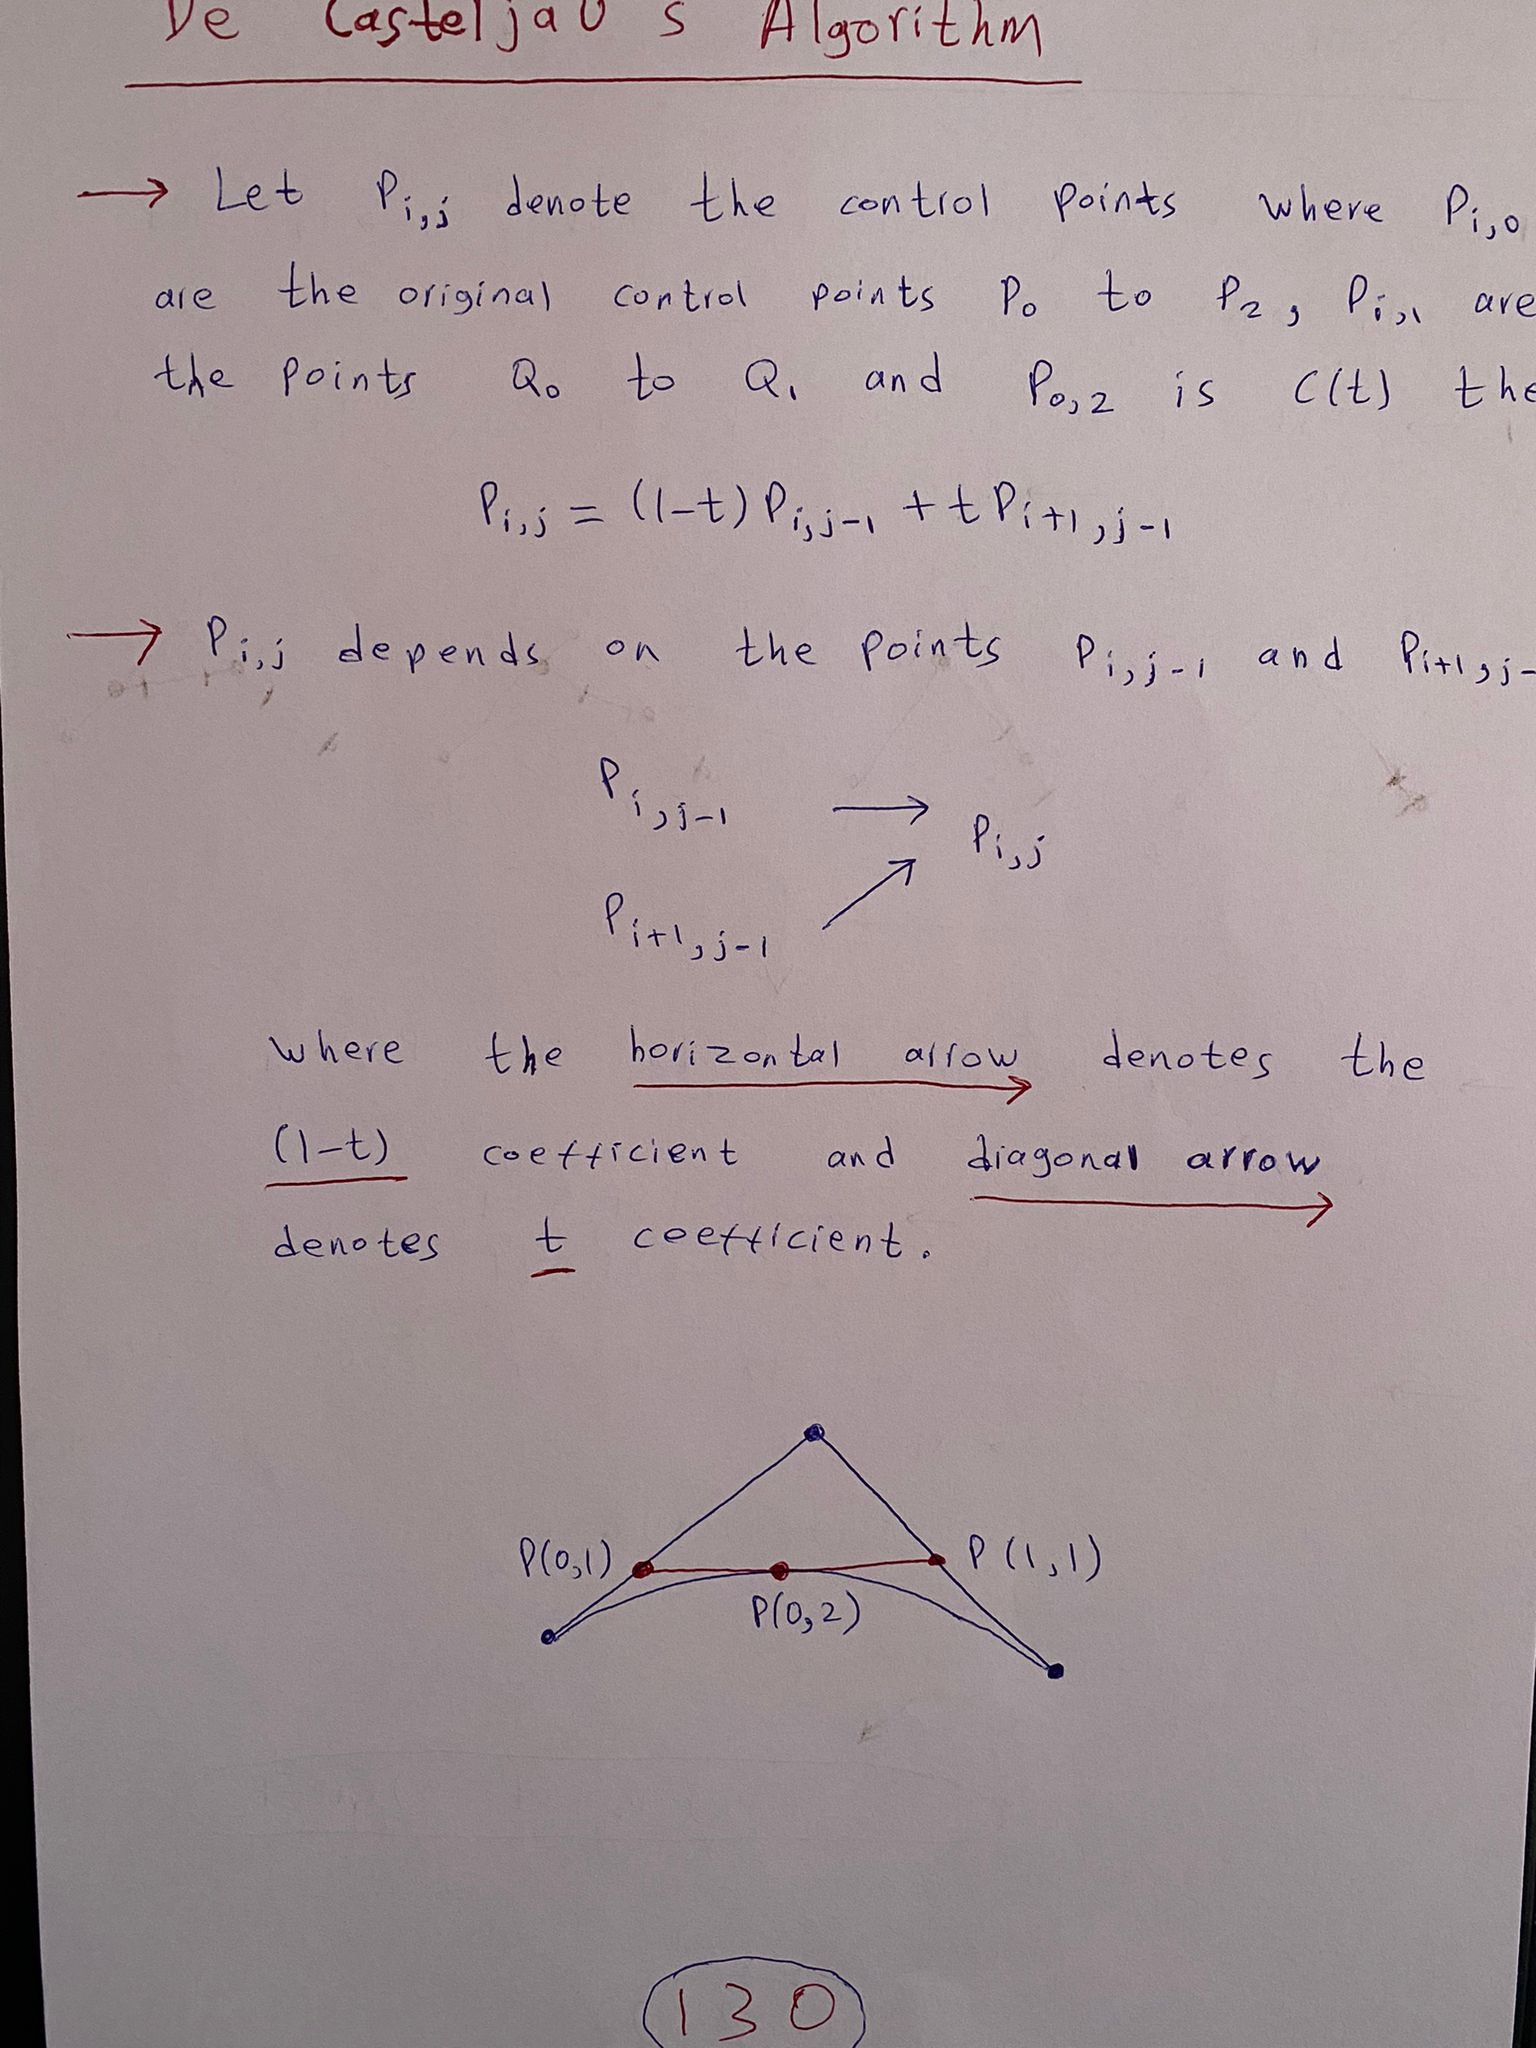 De Casteljau's Algorithm
→ Let Pi,j denote the control points where Pi,0
are the original control points P0 to P2, Pi,1 are
the points Q0 to Q1 and P0,2 is C(t) the
Pi,j = (1-t) Pi,j-1 + t Pi+1,j-1
→ Pi,j depends on the points Pi,j-1 and Pi+1,j-
Pi,j-1 → Pi,j
Pi+1,j-1 ↗
where the horizontal arrow denotes the
(1-t) coefficient and diagonal arrow
denotes t coefficient.
P(0,1) P(1,1)
P(0,2)
130